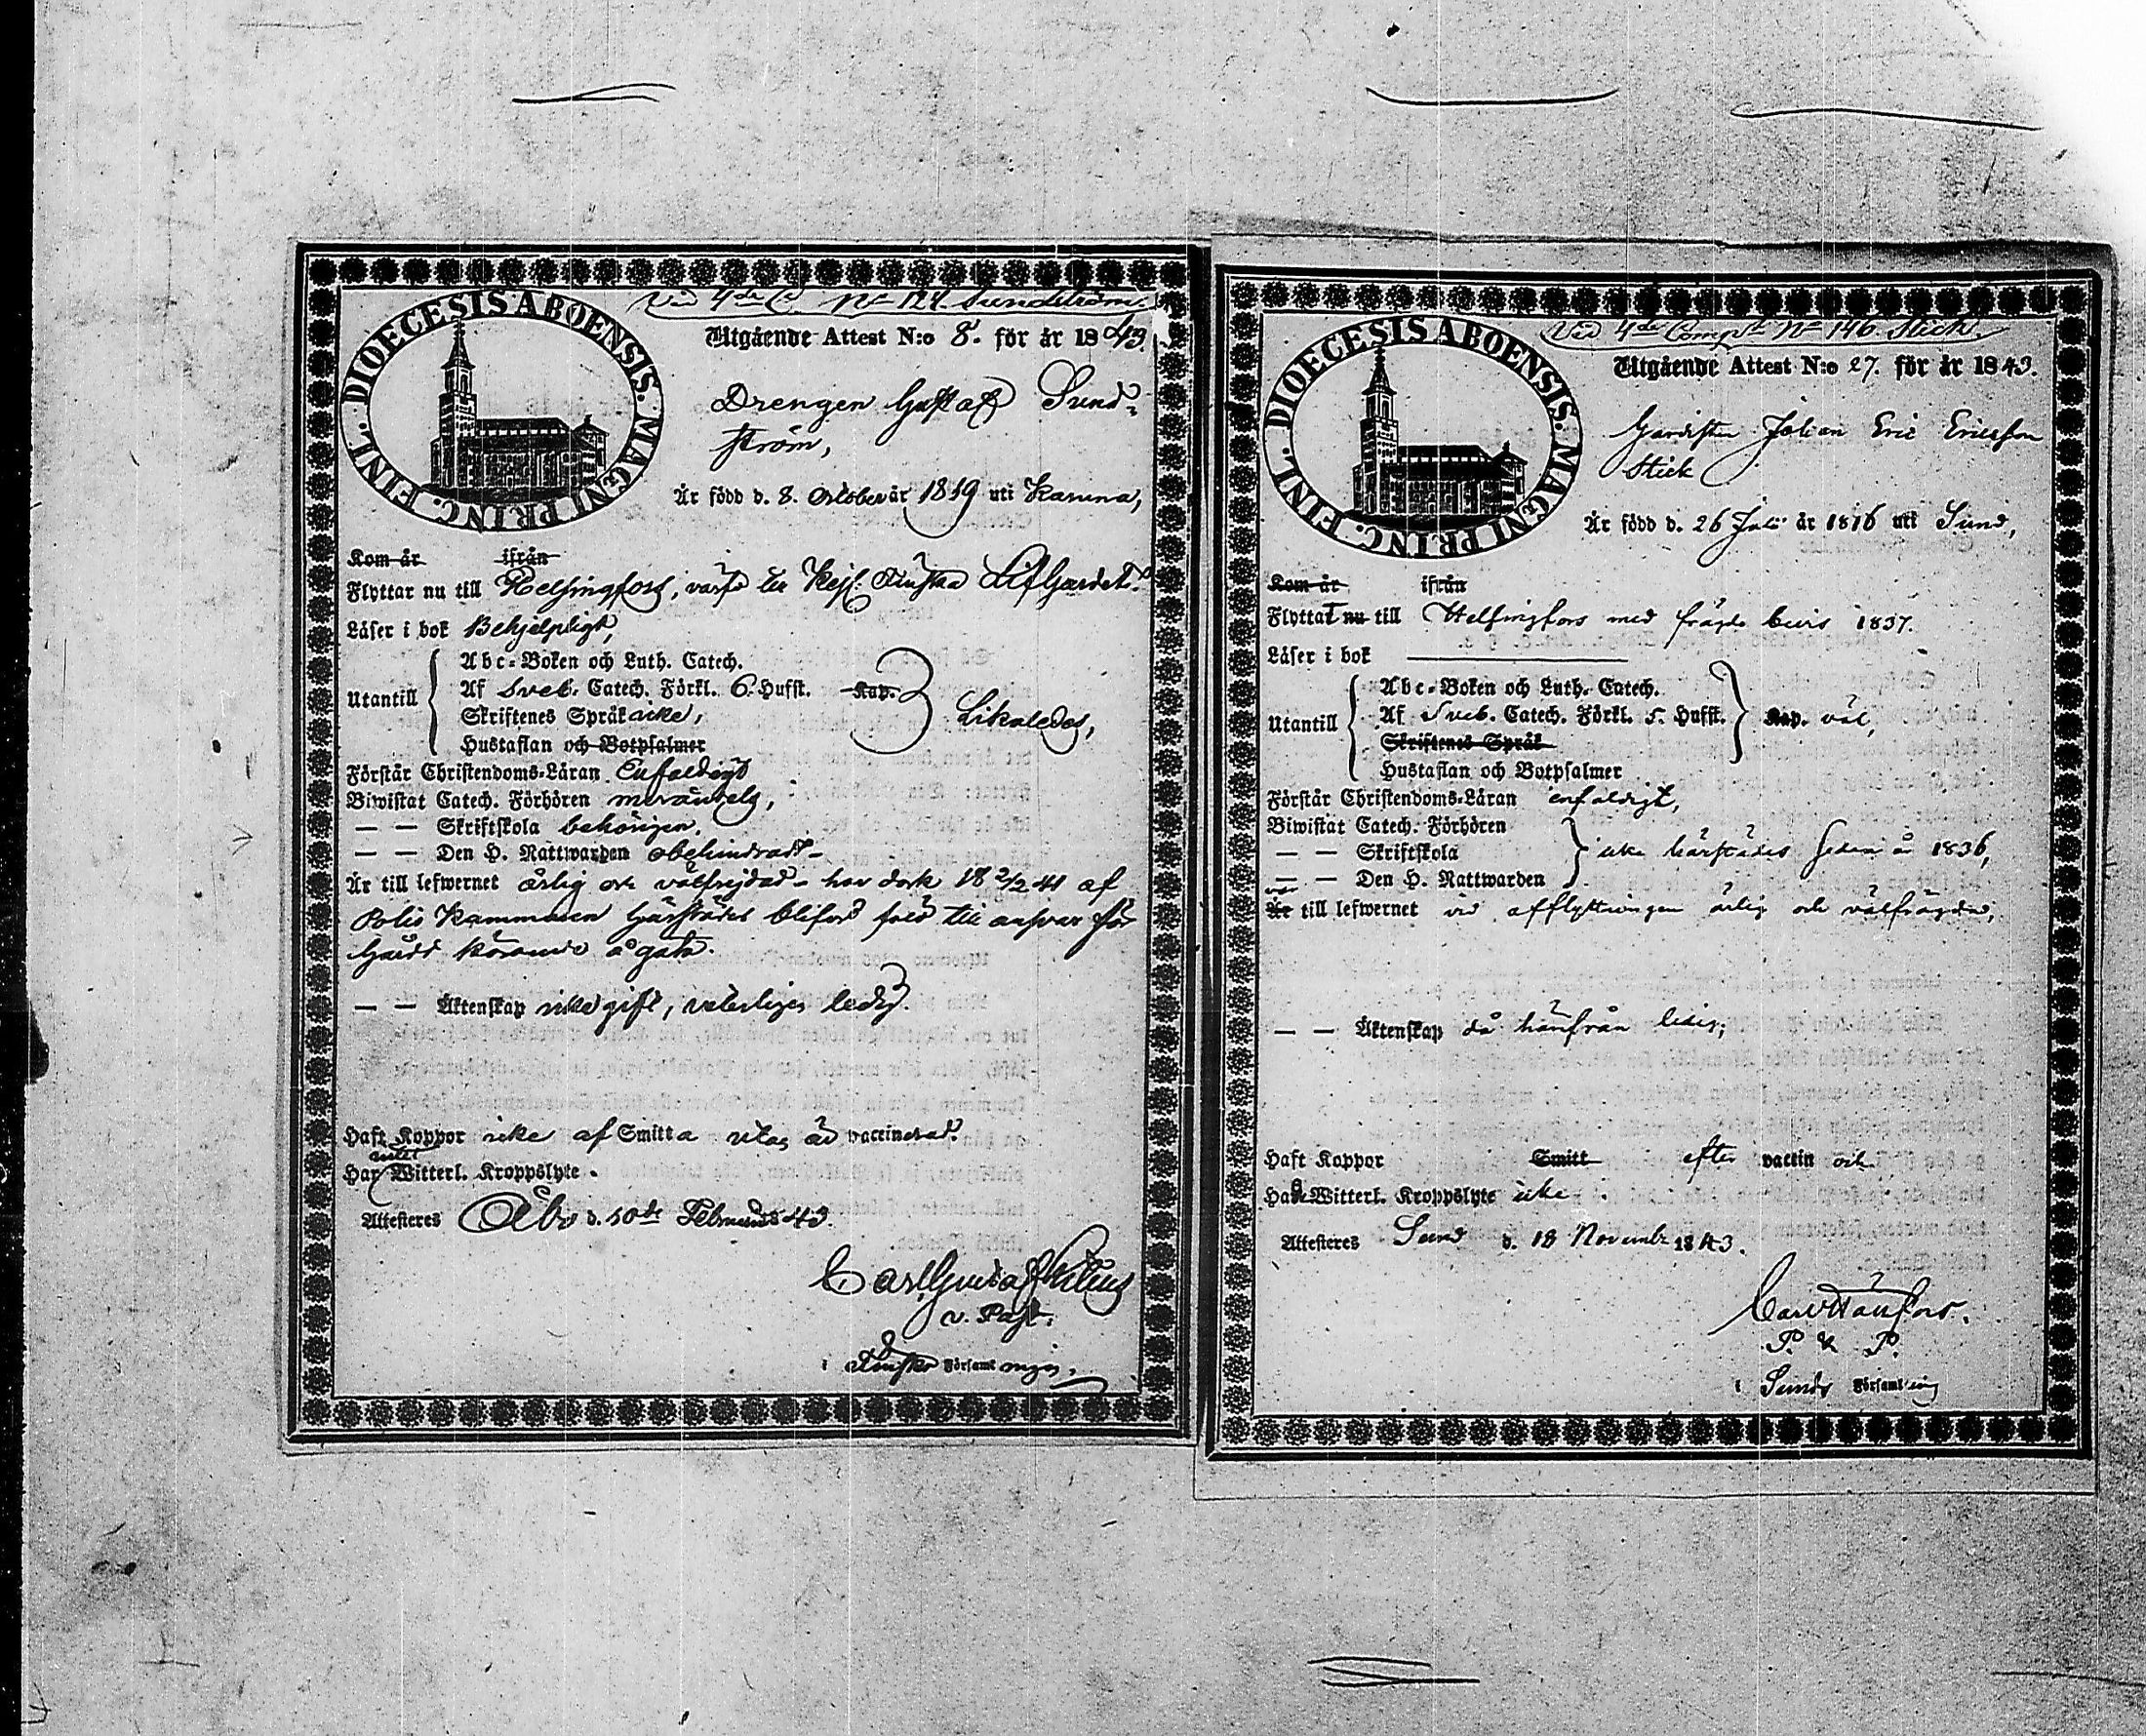 Vid 4de C. No 124. Sundström.
DIOECESIS ABOENSIS. MAGNI PRINC. FINL.
Utgående Attest N:o 8. för år 1843.
Drengen Gustaf Sund-
ström,
Är född d. 8. October år 1819 uti Karuna,
Kom år ifrån
Flyttar nu till Helsingfors, till Kejs. Finska Lif Gardet.
Läser i bok Behjelpligt,
Utantill
Abc-Boken och Luth. Catech.
Af Sveb. Catech. Förkl. 6. Hufst. Kap.
Skriftenes Språk icke,
Hustaflan och Botpsalmer
Likaledes,
Förstår Christendoms-Läran Enfaldigt
Biwistat Catech. Förhören
— — Skriftskola behörigen.
— — Den H. Nattwarden obehindradt
Är till lefwernet ärlig och välfrejdad - har dock 18 2/2 41 af
Polis Kammaren härstädes blifvit till ansvar för
hårdt körande å gata.
— — Äktenskap icke gift, ledig.
Haft Koppor icke af Smitta utan är vaccinerad.
intet
Har Witterl. Kroppslyte.
Attesteres Åbo d. 10de Februarii 43.
Carl Gustaf
v. Past.
i Finska Församlingen.
Vid 4de Comp. No 146. Stick.
DIOECESIS ABOENSIS. MAGNI PRINC. FINL.
Utgående Attest N:o 27. för år 1843.
Gardisten Johan Eric Ericsson
Stick
Är född d. 26 Juli år 1816 uti Sund,
Kom år ifrån
Flyttat nu till Helsingfors med frägde bevis 1837.
Läser i bok
Utantill
Abc-Boken och Luth. Catech.
Af Sveb. Catech. Förkl. 5. Hufst.
Skriftenes Språk
Hustaflan och Botpsalmer
Kap. väl,
Förstår Christendoms-Läran enfaldigt,
Biwistat Catech. Förhören
— — Skriftskola
— — Den H. Nattwarden
icke härstädes sedan år 1836,
var
Är till lefwernet vid afflyttningen ärlig och välfrägdad,
— — Äktenskap då härifrån ledig;
Haft Koppor Smitt efter vaccin och
Har Witterl. Kroppslyte icke.
Attesteres Sund d. 18 November 1843.
P. & P.
i Sunds Församling